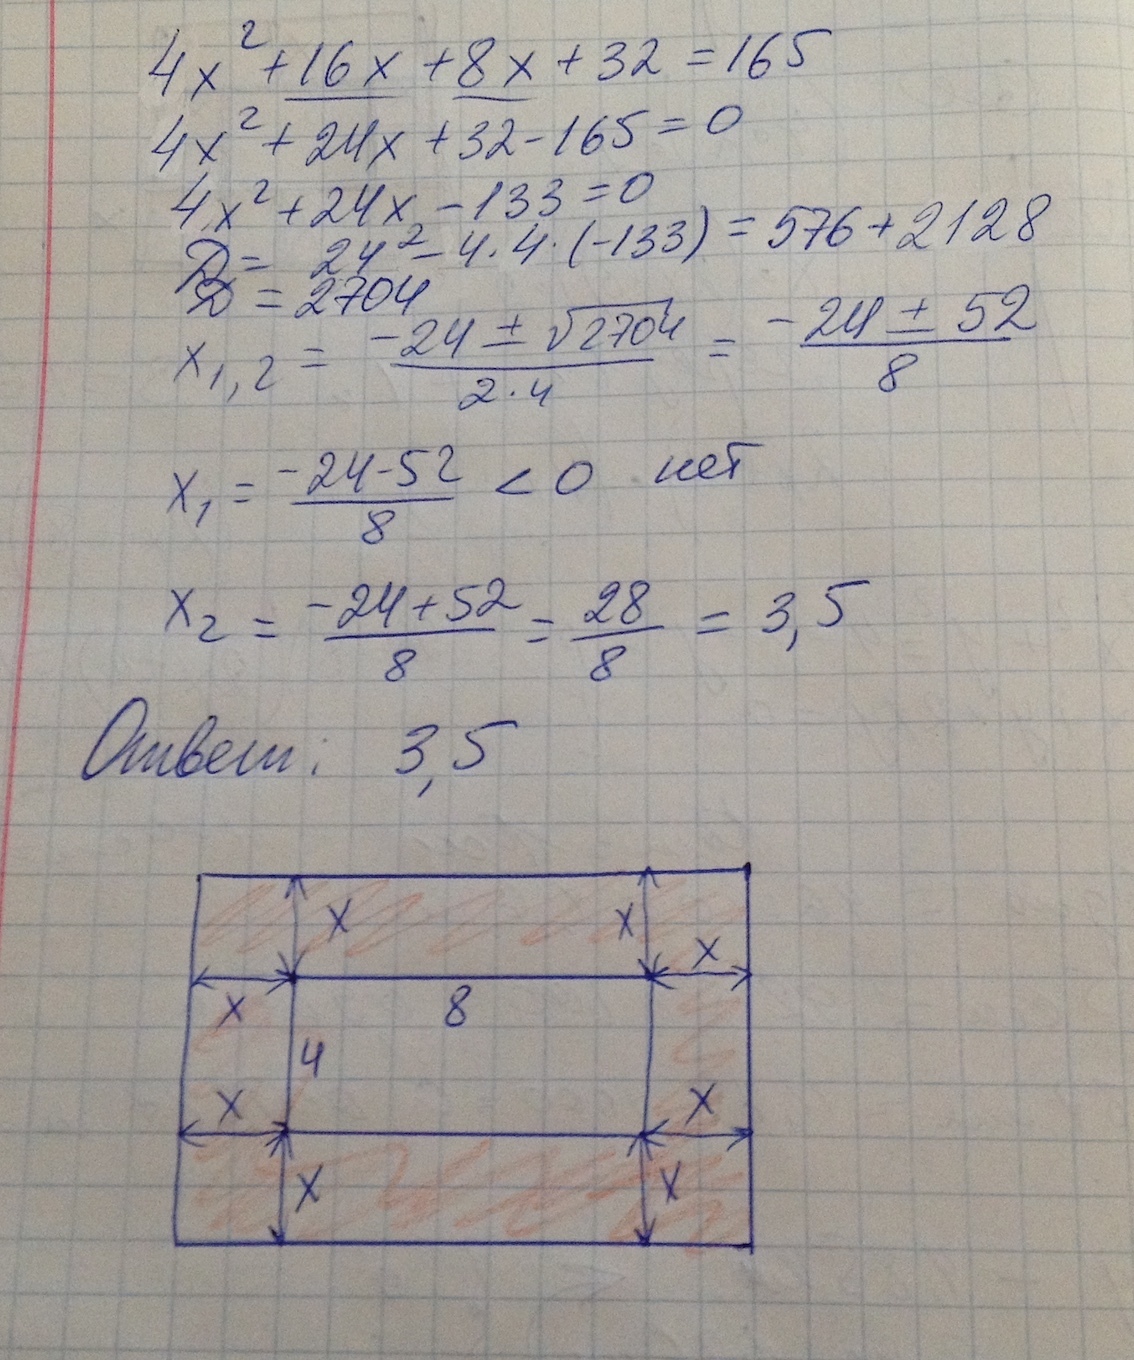 4x² + 16x + 8x + 32 = 165
4x² + 24x + 32 - 165 = 0
4x² + 24x - 133 = 0
D = 24² - 4·4·(-133) = 576 + 2128
D = 2704
x₁,₂ = (-24 ± √2704)/(2·4) = (-24 ± 52)/8
x₁ = (-24-52)/8 < 0 нет
x₂ = (-24+52)/8 = 28/8 = 3,5
Ответ: 3,5
x x x
x 8
4
x x
x x